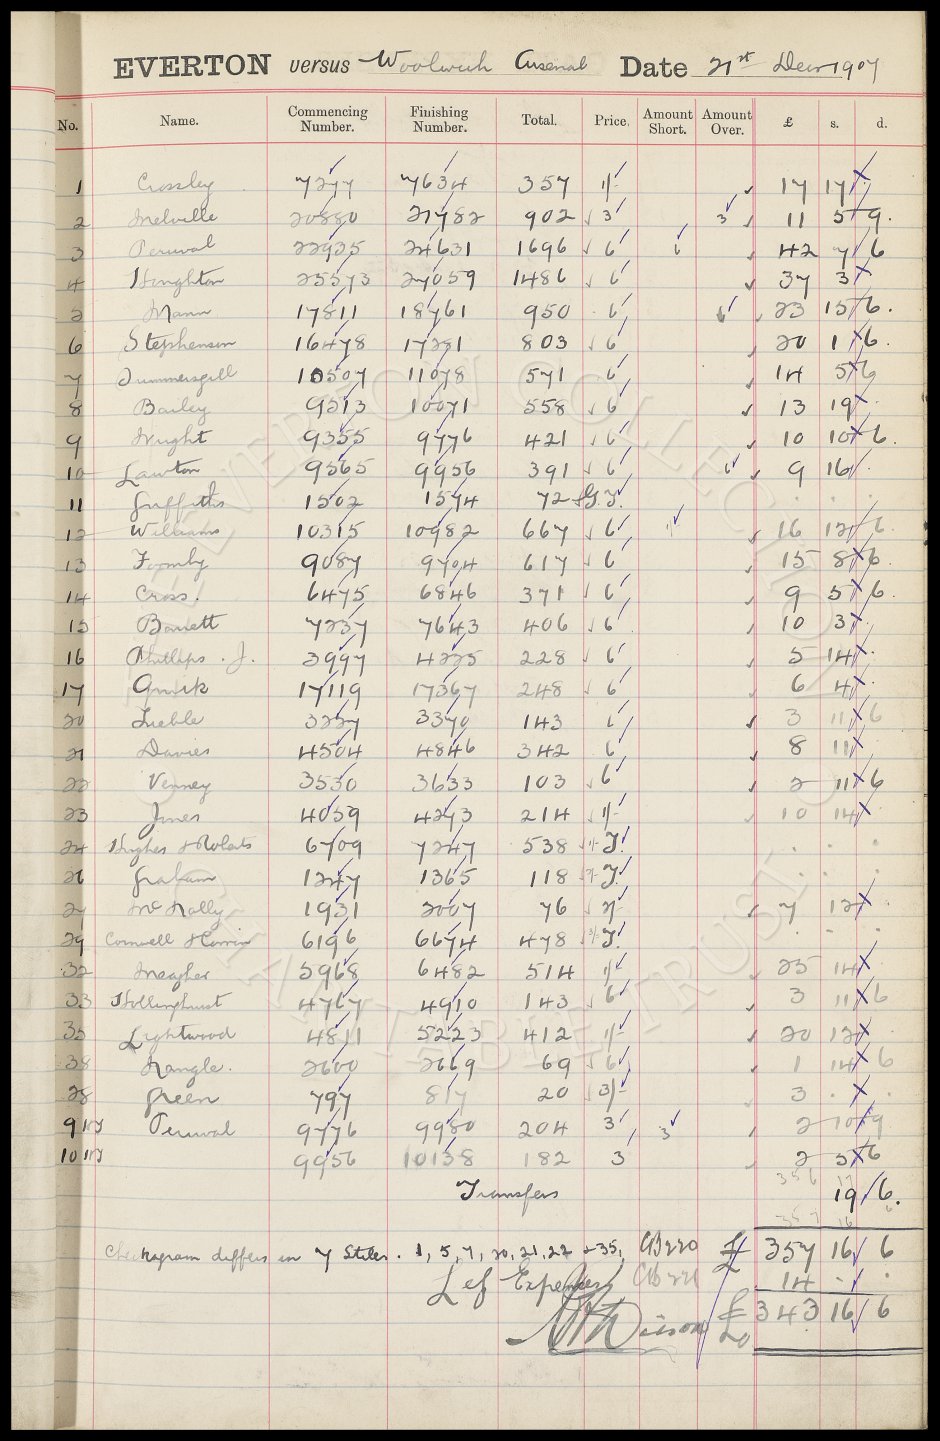 EVERTON versus Woolwich Arsenal Date 21st Decr 1907
No. Name. Commencing Number. Finishing Number. Total. Price. Amount Short. Amount Over. £ s. d.
1 Crossley 7277 7634 357 1/- 17 17 .
2 Melville 20880 21782 902 3 3 11 5 9.
3 Percival 22935 24631 1696 6 6 42 7 6
4 Houghton 25573 27059 1486 6 37 3
5 Mann 17811 18761 950 6 6 23 15 6.
6 Stephenson 16478 17281 803 6 20 1 6.
7 Summersgill 10507 11078 571 6 14 5 6
8 Bailey 9513 10071 558 6 13 19 .
9 Wright 9355 9776 421 6 10 10 6.
10 Lawton 9565 9956 391 6 6 9 16 .
11 Griffiths 1502 1574 72 G.T. . . .
12 Williams 10315 10982 667 6 1/ 16 12 6
13 Formby 9087 9704 617 6 15 8 6.
14 Cross. 6475 6846 371 6 9 5 6.
15 Barrett 7237 7643 406 6 10 3 .
16 Phillips. J. 3997 4225 228 6 5 14 .
17 17119 17367 248 6 6 4 .
20 Lieble 3227 3370 143 6 3 11 6
21 Davies 4504 4846 342 6 8 11
22 Venney 3530 3633 103 6 2 11 6
23 Jones 4059 4273 214 1/- 10 14 .
24 Hughes & Roberts 6709 7247 538 1/- T. . . .
26 Graham 1247 1365 118 T. . . .
27 McNally 1931 2007 76 2/- 7 12 .
29 Cornwell & Corrin 6196 6674 478 T. . . .
32 Meagher 5968 6482 514 1/- 25 14
33 Hollinghurst 4767 4910 143 6 3 11 6
35 Lightwood 4811 5223 412 1/- 20 12 .
38 Nangle. 2600 2669 69 6 1 14 6
28 Green 797 817 20 3/- 3 . .
9 Percival 9776 9980 204 3 3 2 10 9
10 9956 10138 182 3 2 5 6
356 17
Transfers 19 6.
357 16 6
Checkagram differs in 7 Stiles. 1, 5, 7, 20, 21, 22 & 35, CB 220 £ 357 16 6
Less Expenses CB 221 14 - .
Wilson £ 343 16 6
EVERTON COLLECTION
CHARITABLE TRUST